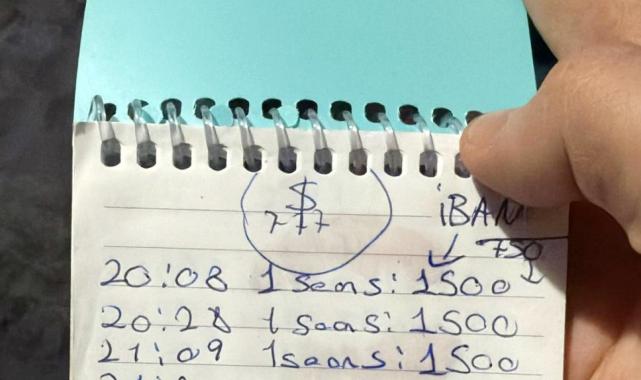 $
777
iBAN
750
20:08 1 Seans: 1500
20:28 1 Seans: 1500
21:09 1 seans: 1500